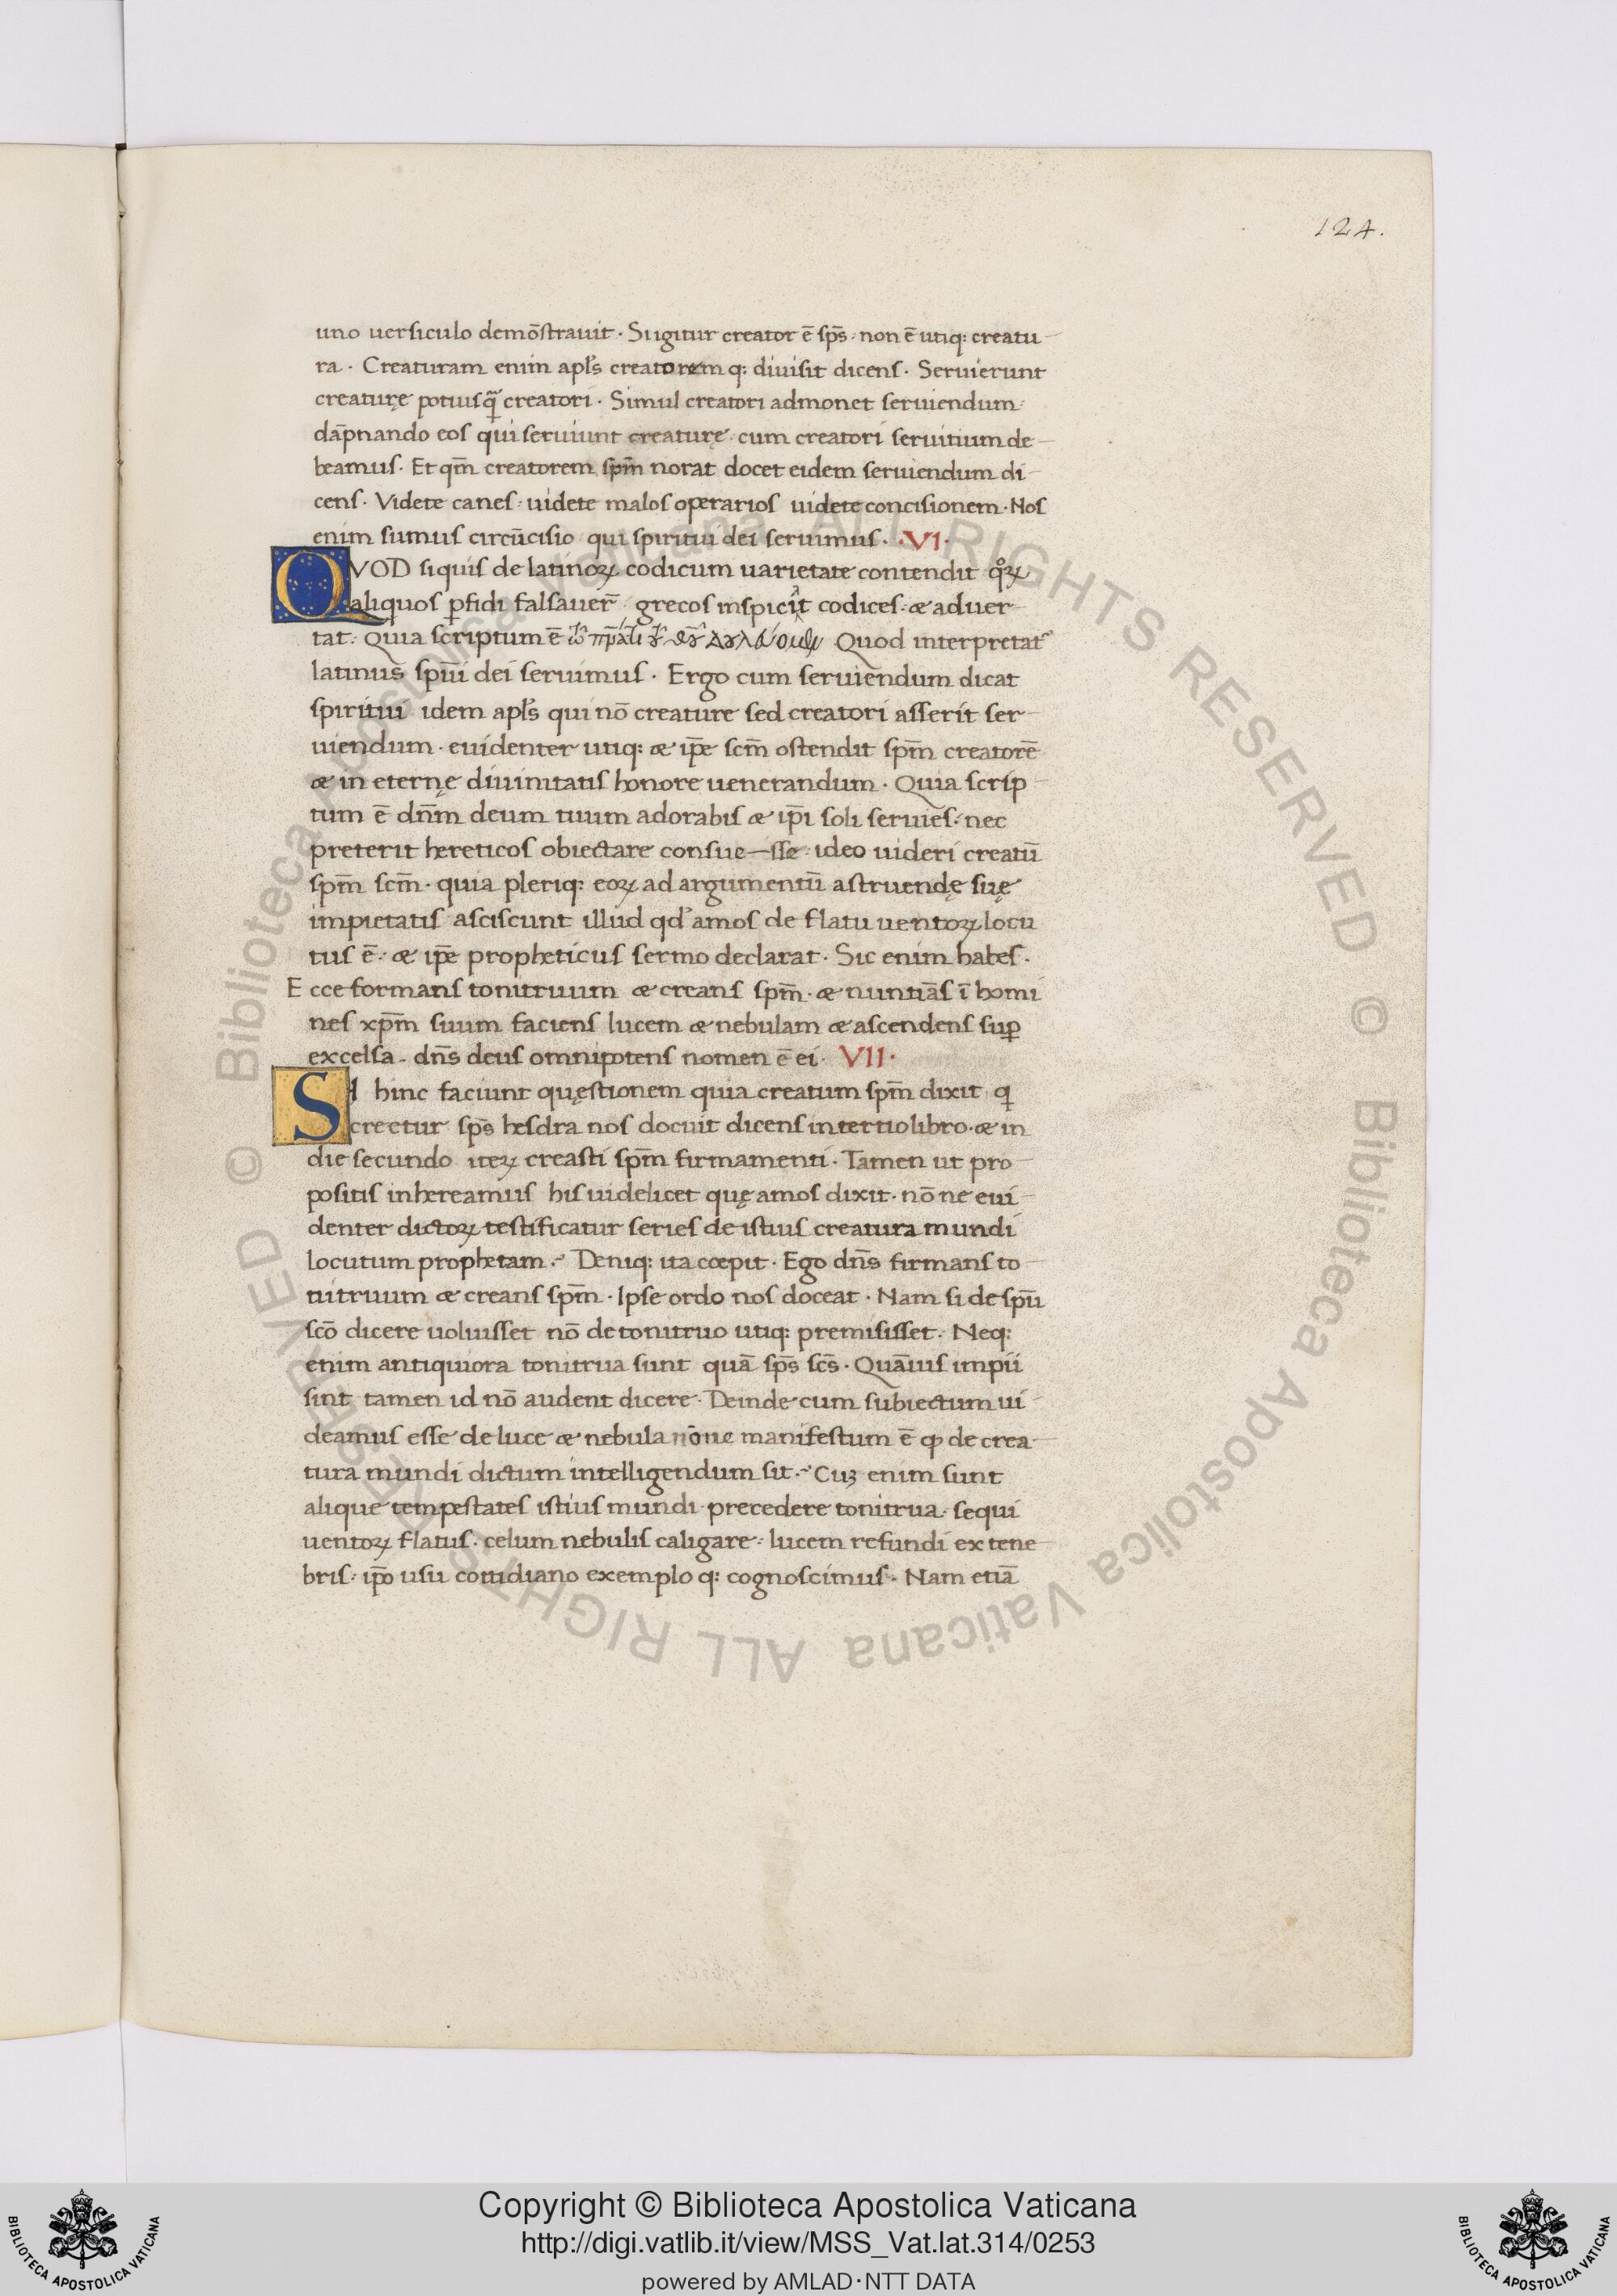 124.
uno uersiculo demōstrauit · Siigitur creator ē sp̄s · non ē utiq: creatu
ra · Creaturam enim apl̄s creatorem q: diuisit dicens · Seruierunt
creaturę potius q̄ creatori · Simul creatori admonet seruiendum ·
dāpnando eos qui seruiunt creaturę · cum creatori seruitium de
beamus · Et qm̄ creatorem sp̄m norat docet eidem seruiendum di
cens · Videte canes · uidete malos operarios uidete concisionem · Nos
enim sumus circūcisio qui spiritui dei seruimus · ·VI·
QVOD siquis de latinoꝝ codicum uarietate contendit qͦꝝ
aliquos ꝑfidi falsauer̄ · grecos inspiciat codices · & aduer
tat · Quia scriptum ē Quod interpretat᷑
latinus sp̄ui dei seruimus · Ergo cum seruiendum dicat
spiritui idem apl̄s qui nō creature sed creatori asserit ser
uiendum · euidenter utiq: & ip̄e scm̄ ostendit sp̄m creatorē
& in eternę diuinitatis honore uenerandum · Quia scrip
tum ē dn̄m deum tuum adorabis & ip̄i soli seruies · nec
preterit hereticos obiectare consue—sse · ideo uideri creatū
sp̄m scm̄ · quia pleriq: eoꝝ ad argumentū astruendę suę
impietatis asciscunt illud qd' amos de flatu uentoꝝ locu
tus ē · & ip̄e propheticus sermo declarat · Sic enim habes ·
Ecce formans tonitruum & creans sp̄m · & nuntiās ī homi
nes xp̄m suum faciens lucem & nebulam & ascendens suꝑ
excelsa · dn̄s deus omnipotens nomen ē ei · VII·
SI hinc faciunt quęstionem quia creatum sp̄m dixit q
creetur sp̄s hesdra nos docuit dicens in tertio libro · & in
die secundo iteꝝ creasti sp̄m firmamenti · Tamen ut pro
positis inhereamus his uidelicet quę amos dixit · nō ne eui
denter dictoꝝ testificatur series de istius creatura mundi
locutum prophetam · Deniq: ita coepit · Ego dn̄s firmans to
nitruum & creans sp̄m · Ipse ordo nos doceat · Nam si de sp̄u
scō dicere uoluisset nō de tonitruo utiq: premisisset · Neq:
enim antiquiora tonitrua sunt quā sp̄s sc̄s · Quāuis impii
sint tamen id nō audent dicere · Deinde cum subiectum ui
deamus esse de luce & nebula nōne manifestum ē ꝙ de crea
tura mundi dictum intelligendum sit · Cuꝫ enim sunt
alique tempestates istius mundi · precedere tonitrua · sequi
uentoꝝ flatus · celum nebulis caligare · lucem refundi ex tene
bris · ip̄o usu cotidiano exemplo q: cognoscimus · Nam etiā
© Biblioteca Apostolica Vaticana ALL RIGHTS RESERVED
© Biblioteca Apostolica Vaticana ALL RIGHTS RESERVED
Copyright © Biblioteca Apostolica Vaticana
http://digi.vatlib.it/view/MSS_Vat.lat.314/0253
powered by AMLAD·NTT DATA
BIBLIOTECA APOSTOLICA VATICANA
BIBLIOTECA APOSTOLICA VATICANA